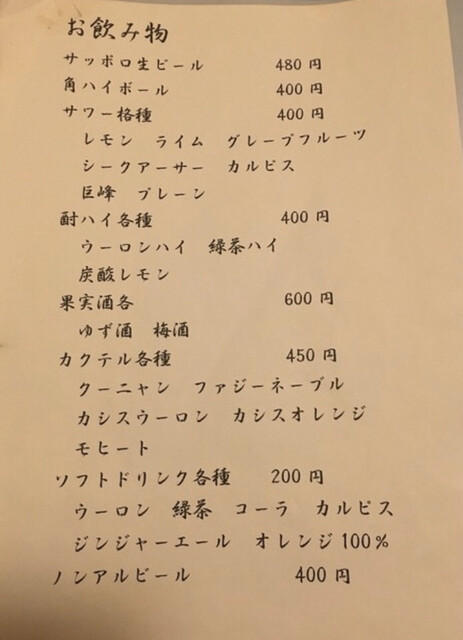 お飲み物
サッポロ生ビール 480円
角ハイボール 400円
サワー格種 400円
レモン ライム グレープフルーツ
シークアーサー カルピス
巨峰 プレーン
酎ハイ各種 400円
ウーロンハイ 緑茶ハイ
炭酸レモン
果実酒各 600円
ゆず酒 梅酒
カクテル各種 450円
クーニャン ファジーネーブル
カシスウーロン カシスオレンジ
モヒート
ソフトドリンク各種 200円
ウーロン 緑茶 コーラ カルピス
ジンジャーエール オレンジ100%
ノンアルビール 400円